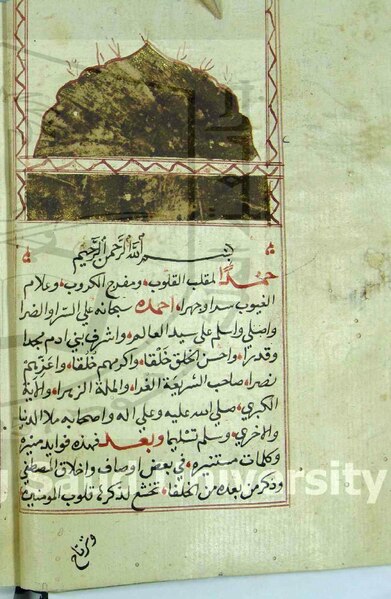 بسم الله الرحمن الرحيم
حمدا لمقلب القلوب ومفرج الكروب وعلام
الغيوب سرا وجهرا احمده سبحانه على السرا والضرا
واصلي واسلم على سيد العالم واشرف بني ادم مجدا
وقدرا واحسن الخلق خلقا واكرمهم خلقا واعزهم
نصرا صاحب الشريعة الغرا والملة الزهرا والاية
الكبري صلي الله عليه وعلي اله واصحابه ملا الدنيا
والاخري وسلم تسليما وبعد فهذه فوايد منيره
وكلمات مستنيره في بعض اوصاف واخلاق المصطفي
وذكر من بعده من الخلفا تخشع لذكرها قلوب المومنين
وترتاح
Saud University